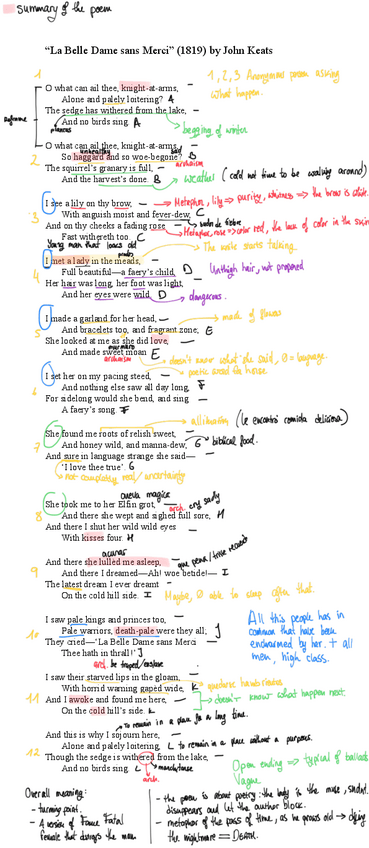 Summary of the poem
“La Belle Dame sans Merci” (1819) by John Keats
1
O what can ail thee, knight-at-arms, —
Alone and palely loitering? A
The sedge has withered from the lake, —
And no birds sing. A
1, 2, 3 Anonymous person asking
what happen.
begging of winter
O what can ail thee, knight-at-arms, —
unhealthy
sad
2
So haggard and so woe-begone? B
archaism
The squirrel's granary is full, —
And the harvest's done. B
weather (cold not time to be walking around)
I see a lily on thy brow, —
Metaphor, lily => purity, whiteness => the brow is white.
3
With anguish moist and fever-dew, C
And on thy cheeks a fading rose —
Metaphor, rose => color red, the lack of color in the skin
Fast withereth too. C
Young man that looks old
I met a lady in the meads, —
The male starts talking.
4
Full beautiful—a faery's child, D
Her hair was long, her foot was light, —
Unthigh hair, not prepared
And her eyes were wild. D
dangerous.
I made a garland for her head, —
made of flowers
5
And bracelets too, and fragrant zone, E
She looked at me as she did love, —
murmuro
And made sweet moan E
archaism
doesn't know what she said, Ø = language.
I set her on my pacing steed, —
poetic word for horse.
6
And nothing else saw all day long, F
For sidelong would she bend, and sing —
A faery's song. F
alliteration (le encontró comida deliciosa)
She found me roots of relish sweet, —
7
And honey wild, and manna-dew, G biblical food.
And sure in language strange she said—
‘I love thee true’. G
not completely real / uncertainty
cueva magica
She took me to her Elfin grot, —
arch.
cry sadly
8
And there she wept and sighed full sore, H
And there I shut her wild wild eyes —
With kisses four. H
acunar
And there she lulled me asleep, —
9
And there I dreamed—Ah! woe betide!— I
The latest dream I ever dreamt —
On the cold hill side. I
Maybe, Ø able to sleep after that.
I saw pale kings and princes too, —
10
Pale warriors, death-pale were they all; J
They cried—‘La Belle Dame sans Merci —
Thee hath in thrall!’ J
arch. be traped/enslave
All this people has in
common that have been
enchanted by her. + all
men, high class.
I saw their starved lips in the gloam, —
With horrid warning gaped wide, K
11
And I awoke and found me here, —
doesn't know what happen next.
On the cold hill's side. K
To remain in a place for a long time.
And this is why I sojourn here, —
Alone and palely loitering, L
to remain in a place without a purpose.
12
Though the sedge is withered from the lake, —
And no birds sing. L
arch.
Open ending => typical of ballads
Vague
Overall meaning:
- turning point.
- A version of Fame Fatal
female that damages the man
- the poem is about poetry: the lady is the muse,
disappears and let the author block.
- metaphor of the pass of time, as he grows old → dying
the nightmare = Death.